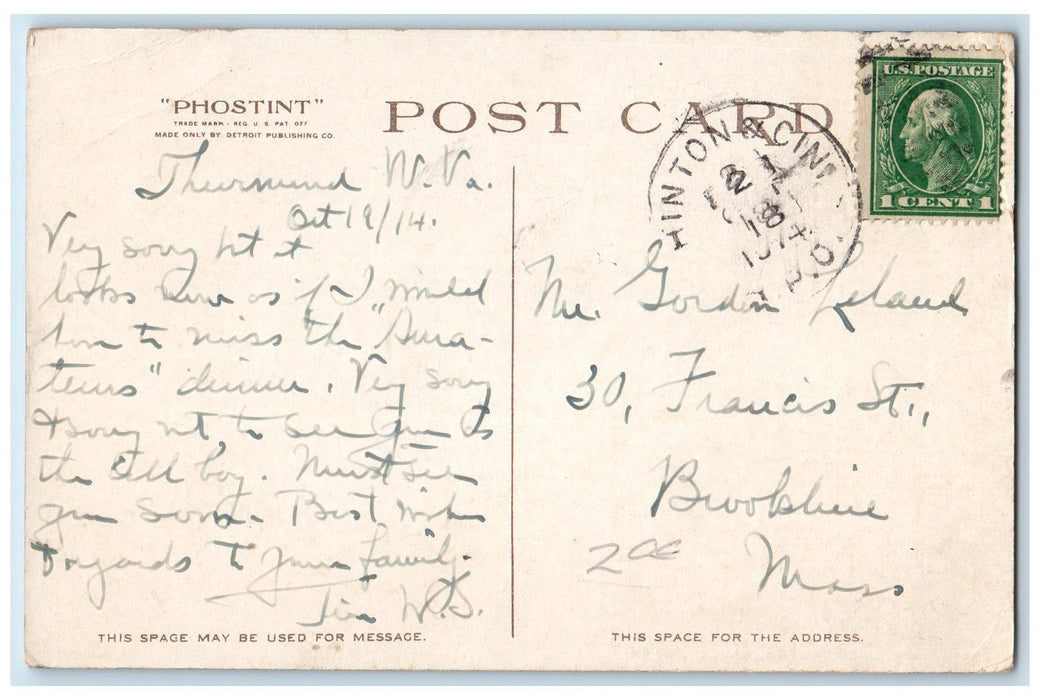 "PHOSTINT"
TRADE MARK - REG. U. S. PAT. OFF
MADE ONLY BY DETROIT PUBLISHING CO.
POST CARD
U.S. POSTAGE
1 CENT 1
HINTON & CIN
R.P.O.
Thurmond W. Va.
Oct 19/14.
Very sorry but it
looks now as if I would
have to miss the "Ama-
teurs" dinner. Very sorry
& sorry not to see you as
the call boy. Must see
you soon. Best wishes
& regards to your family.
Jim W.S.
THIS SPACE MAY BE USED FOR MESSAGE.
Mr. Gordon Leland
30, Francis St.,
Brookline
Mass
THIS SPACE FOR THE ADDRESS.